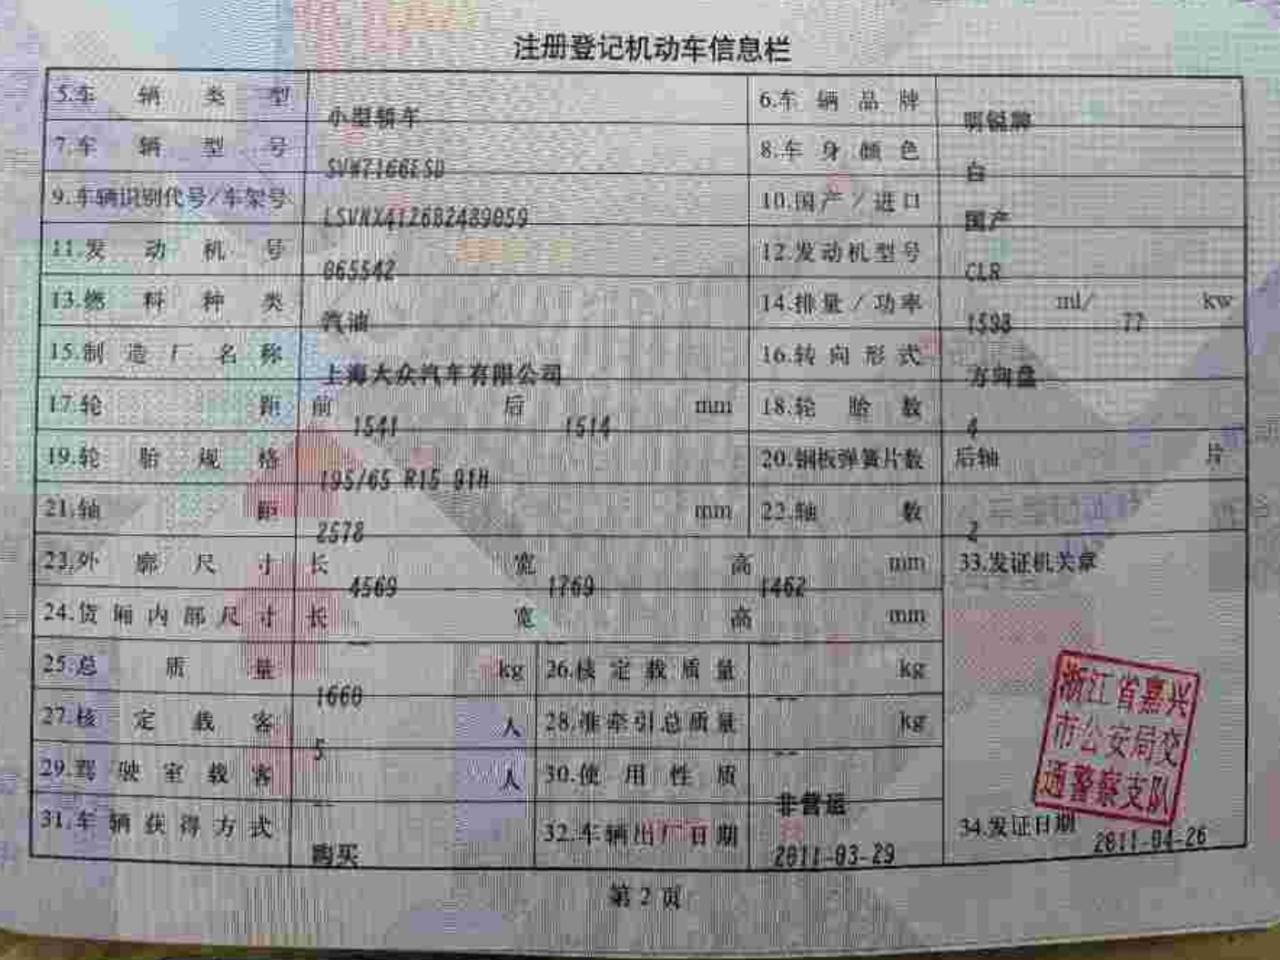 注册登记机动车信息栏
5.车辆类型 小型轿车 6.车辆品牌 明锐牌
7.车辆型号 SVW7166ESD 8.车身颜色 白
9.车辆识别代号/车架号 10.国产/进口 国产
11.发动机号 065542 12.发动机型号 CLR
13.燃料种类 汽油 14.排量/功率 1598 ml/ 77 kw
15.制造厂名称 上海大众汽车有限公司 16.转向形式 方向盘
17.轮距 前 1541 后 1514 mm 18.轮胎数 4
19.轮胎规格 195/65 R15 91H 20.钢板弹簧片数 后轴 片
21.轴距 2578 mm 22.轴数 2
23.外廓尺寸 长 4569 宽 1769 高 1462 mm 33.发证机关章
24.货厢内部尺寸 长 -- 宽 -- 高 -- mm
25.总质量 1660 kg 26.核定载质量 -- kg
27.核定载客 5 人 28.准牵引总质量 -- kg
29.驾驶室载客 -- 人 30.使用性质 非营运
31.车辆获得方式 购买 32.车辆出厂日期 2011-03-29 34.发证日期 2011-04-26
浙江省嘉兴
市公安局交
通警察支队
第2页